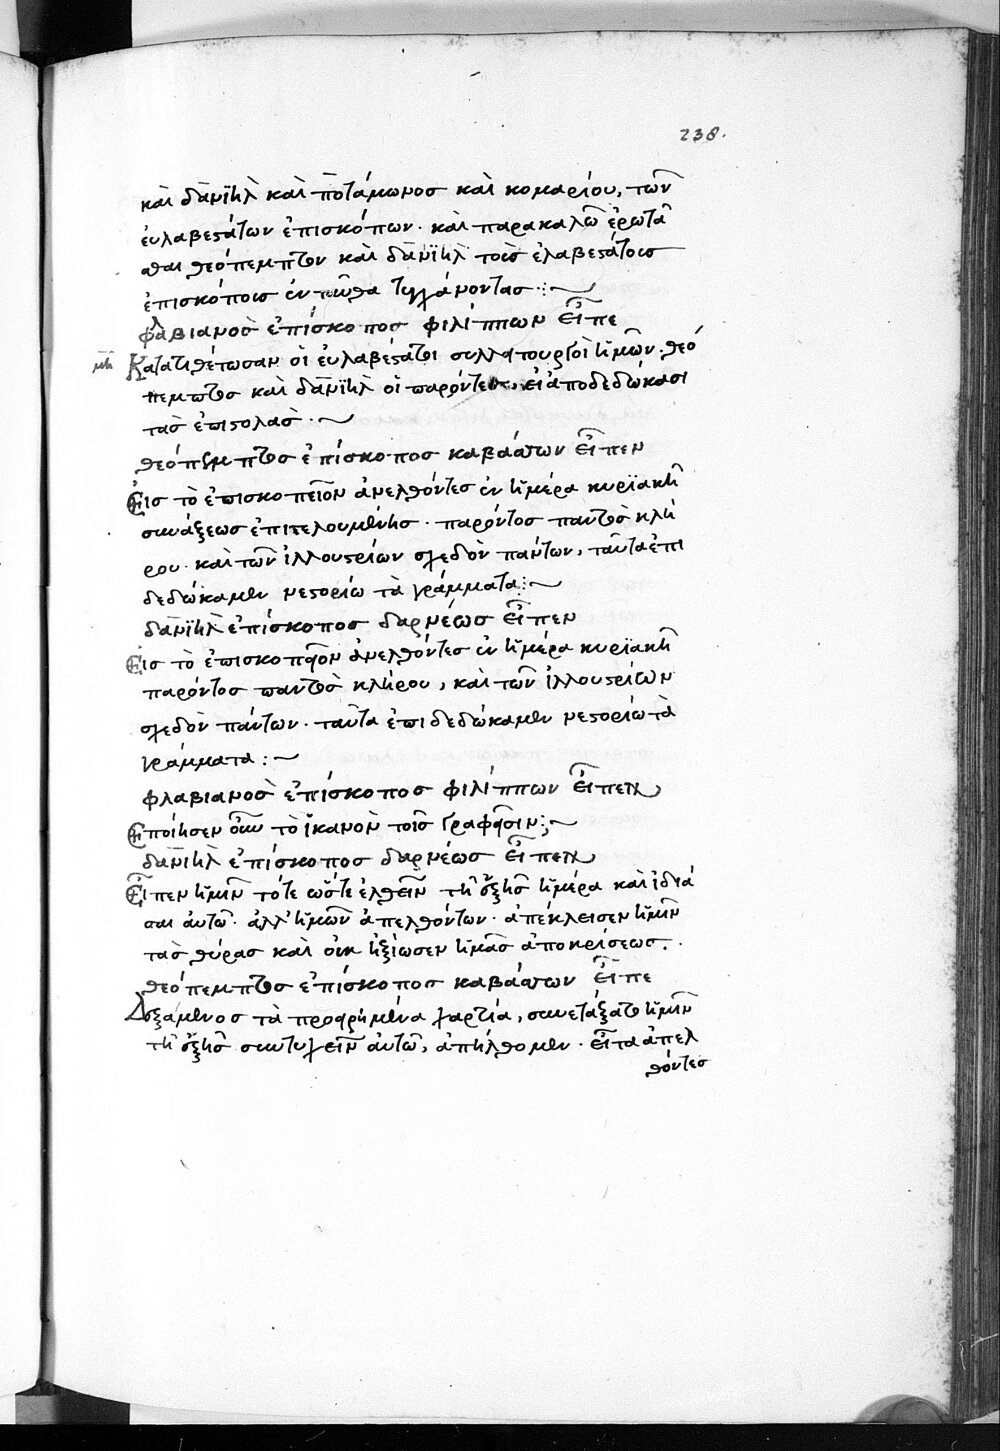 238.
καὶ δανϊὴλ καὶ ποτάμωνος καὶ κομαρίου, τῶν
εὐλαβεστάτων ἐπισκόπων. καὶ παρακαλῶ ἐρωτᾶ
σθαι θεόπεμπτον καὶ δανϊὴλ τοὺς ἐλαβεστάτους
ἐπισκόπους ἐνταῦθα τυγχάνοντας :~
φλαβιανὸς ἐπίσκοπος φιλίππων εἶπε
Κατατιθέτωσαν οἱ εὐλαβέστατοι συλλειτουργοὶ ἡμῶν. θεό
πεμπτος καὶ δανϊὴλ οἱ παρόντες, εἰ ἀποδεδώκασι
τὰς ἐπιστολάς .~
θεόπεμπτος ἐπίσκοπος καβάσων εἶπεν
Εἰς τὸ ἐπισκοπεῖον ἀνελθόντες ἐν ἡμέρα κυρϊακῆ
συνάξεως ἐπιτελουμένης . παρόντος παντὸς κλή
ρου . καὶ τῶν ἰλλουστρίων σχεδὸν πάντων, ταῦτα ἐπι
δεδώκαμεν νεστορίω τὰ γράμματα :~
δανϊὴλ ἐπίσκοπος δαρνέως εἶπεν
Εἰς τὸ ἐπισκοπεῖον ἀνελθόντες ἐν ἡμέρα κυρϊακῆ
παρόντος παντὸς κλήρου, καὶ τῶν ἰλλουστρίων
σχεδὸν πάντων . ταῦτα ἐπιδεδώκαμεν νεστορίω τὰ
γράμματα :~
φλαβιανὸς ἐπίσκοπος φιλίππων εἶπεν
Ἐποίησεν οὖν τὸ ἱκανὸν τοῖς γραφεῖσιν :~
δανιὴλ ἐπίσκοπος δαρνέως εἶπεν
Εἶπεν ἡμῖν τότε ὥστε ἐλθεῖν τῆ ἑξῆς ἡμέρα καὶ ἰδιά
σαι αὐτῶ . ἀλλ' ἡμῶν ἀπελθόντων . ἀπέκλεισεν ἡμῖν
τὰς θύρας καὶ οὐκ ἠξίωσεν ἡμᾶς ἀποκρίσεως .
θεόπεμπτος ἐπίσκοπος καβάσων εἶπε
Δεξάμενος τὰ προειρημένα χαρτία, συνετάξατο ἡμῖν
τῆ ἑξῆς συντυχεῖν αὐτῶ, ἀπήλθομεν . εἶτα ἀπελ
θόντες